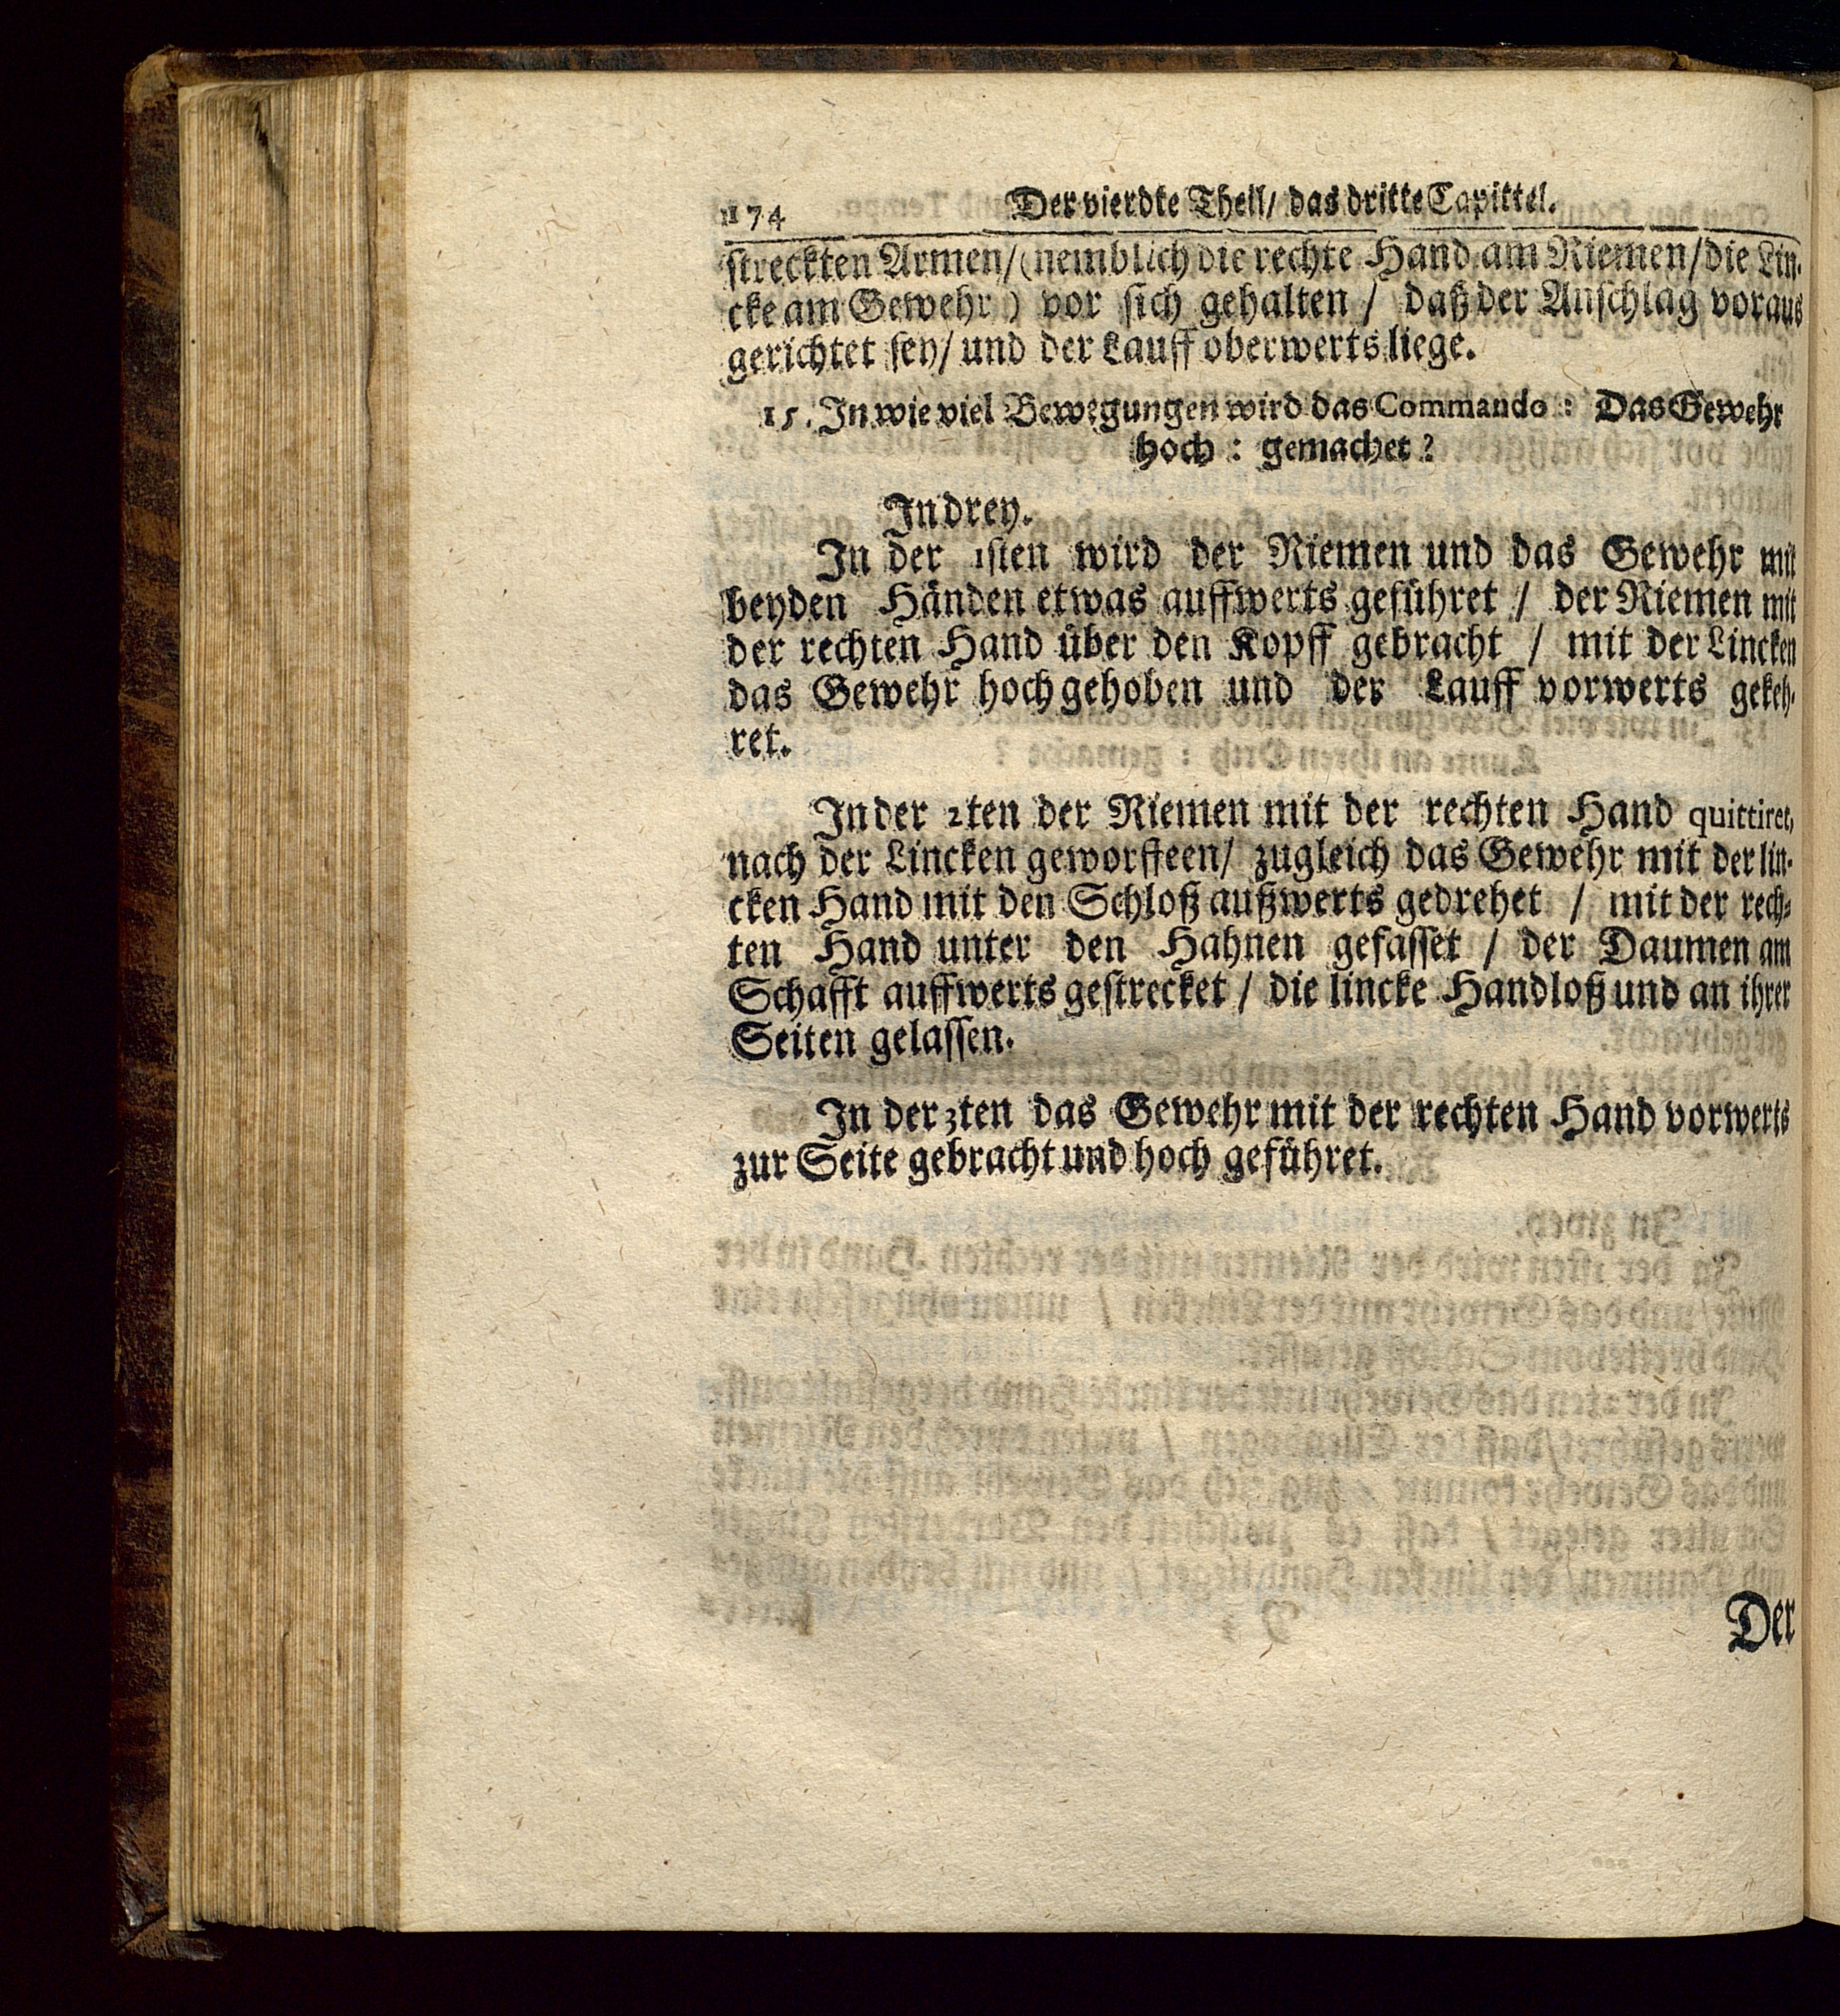 1174 Der vierdte Theil/ das dritte Capittel.
streckten Armen/(nemblich die rechte Hand am Riemen/die Lin-
cke am Gewehr) vor sich gehalten / daß der Anschlag voraus
gerichtet sey/ und der Lauff oberwerts liege.
15. In wie viel Bewegungen wird das Commando: Das Gewehr
hoch: gemachet?
In drey.
In der 1sten wird der Riemen und das Gewehr mit
beyden Händen etwas auffwerts geführet / der Riemen mit
der rechten Hand über den Kopff gebracht / mit der Lincken
das Gewehr hoch gehoben und der Lauff vorwerts gekeh-
ret.
In der 2ten der Riemen mit der rechten Hand quittiret,
nach der Lincken geworffeen/ zugleich das Gewehr mit der lin-
cken Hand mit den Schloß außwerts gedrehet / mit der rech-
ten Hand unter den Hahnen gefasset / der Daumen am
Schafft auffwerts gestrecket / die lincke Hand loß und an ihrer
Seiten gelassen.
In der 3ten das Gewehr mit der rechten Hand vorwerts
zur Seite gebracht und hoch geführet.
Der